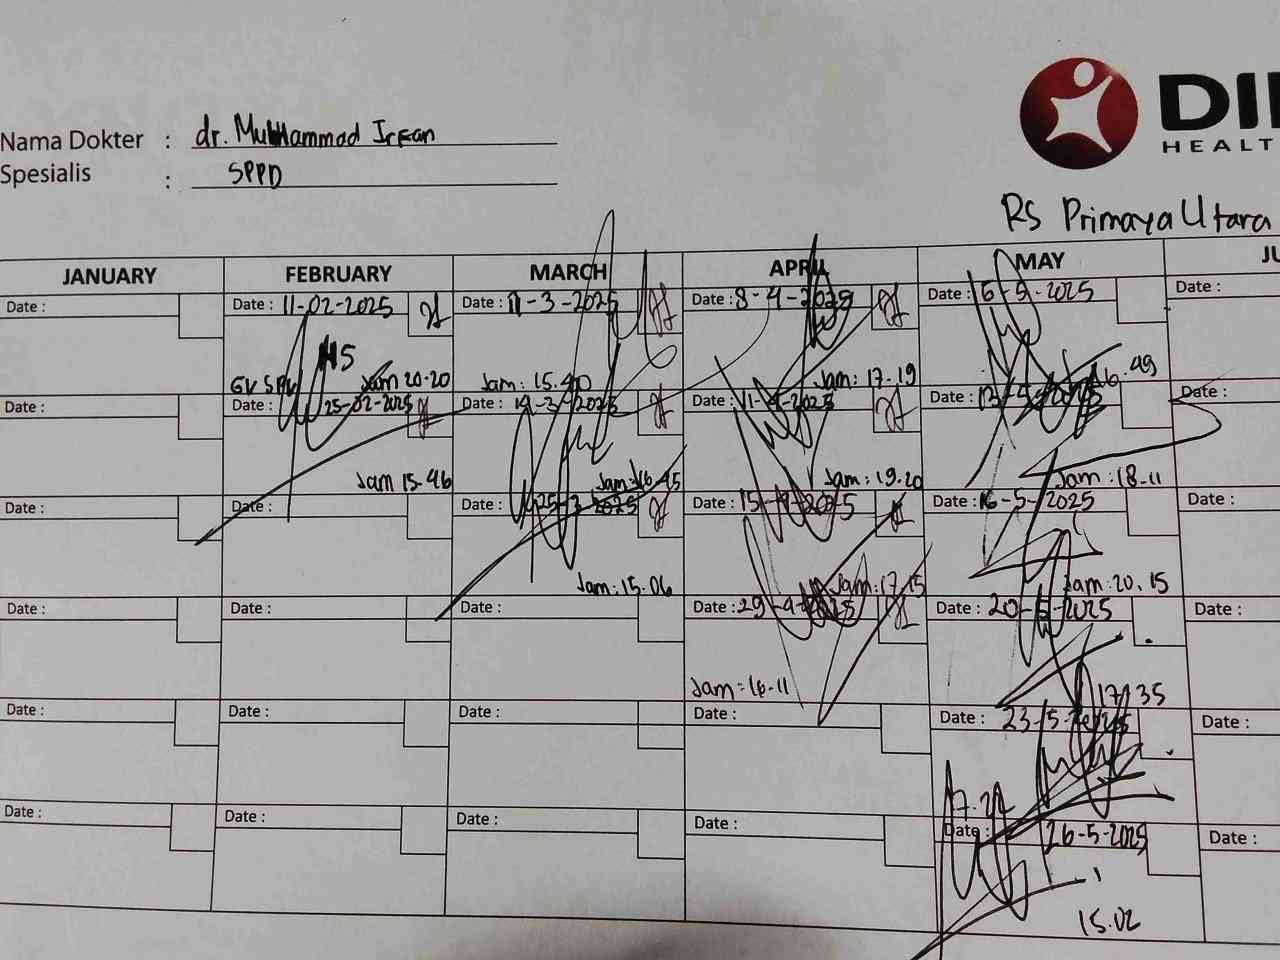 DI
HEALT
Nama Dokter : dr. Muhammad Irfan
Spesialis : SPPD
RS Primaya Utara
JANUARY FEBRUARY MARCH APRIL MAY JU
Date : Date : 11-02-2025 Date : 11-3-2025 Date : 8-4-2025 Date : 6-5-2025 Date :
Jam 20-20 Jam: 15.40 Jam: 17-19 16.49
Date : Date : 25-02-2025 Date : 14-3-2025 Date : 11-4-2025 Date : Date :
Jam 15-46 Jam: 16-45 Jam: 19-20 Jam: 18-11
Date : Date : Date : 25-3-2025 Date : 15-4-2025 Date : 16-5-2025 Date :
Jam: 15.06 Jam: 17.15 Jam: 20.15
Date : Date : Date : Date : 29-4-2025 Date : 20-5-2025 Date :
Jam: 16-11 17.35
Date : Date : Date : Date : Date : 23-5-2025 Date :
Date : Date : Date : Date : Date : 26-5-2025 Date :
15.02